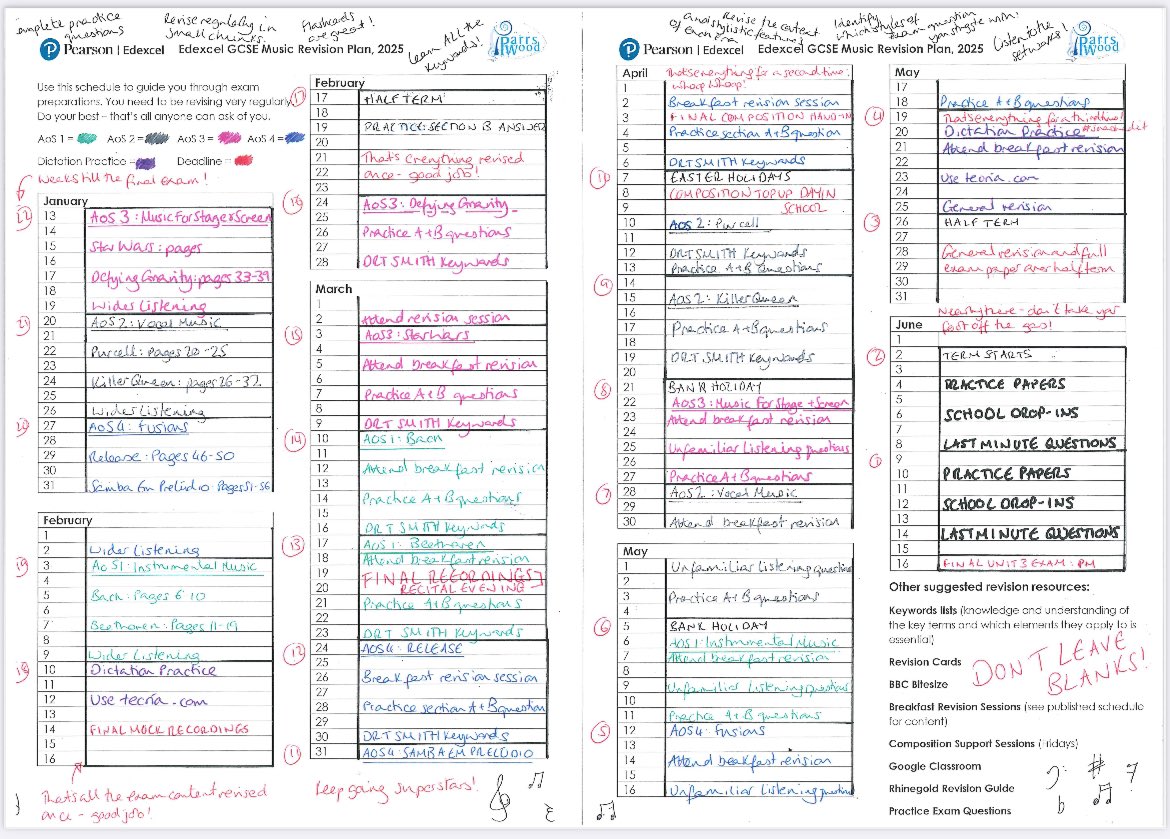 Complete practice questions
Revise regularly in small chunks.
Flashcards are great!
Learn ALL the keywords!
Pearson | Edexcel
Edexcel GCSE Music Revision Plan, 2025
Parrs Wood
Use this schedule to guide you through exam
preparations. You need to be revising very regularly.
Do your best – that's all anyone can ask of you.
AoS 1 = AoS 2 = AoS 3 = AoS 4 =
Dictation Practice = Deadline =
Weeks till the final exam!
January
13 AoS 3: Music For Stage & Screen
14
15 Star Wars: pages
16
17 Defying Gravity: pages 33-39
18
19 Wider Listening
20 AoS 2: Vocal Music
21
22 Purcell: Pages 20-25
23
24 Killer Queen: pages 26-32
25
26 Wider Listening
27 AoS 4: Fusions
28
29 Release: Pages 46-50
30
31 Samba Em Preludio: Pages 51-56
February
1
2 Wider Listening
3 AoS 1: Instrumental Music
4
5 Bach: Pages 6-10
6
7 Beethoven: Pages 11-19
8
9 Wider Listening
10 Dictation Practice
11
12 Use teoria.com
13
14 FINAL MOCK RECORDINGS
15
16
That's all the exam content revised
once - good job!
February
17 HALF TERM
18
19 PRACTICE: SECTION B ANSWER
20
21 That's everything revised
22 once - good job!
23
24 AOS3: Defying Gravity
25
26 Practice A+B questions
27
28 DRT SMITH Keywords
March
1
2 Attend revision session
3 AoS3: Star Wars
4
5 Attend breakfast revision
6
7 Practice A+B questions
8
9 DRT SMITH Keywords
10 AOS1: Bach
11
12 Attend breakfast revision
13
14 Practice A+B questions
15
16 DRT SMITH Keywords
17 AOS1: Beethoven
18 Attend breakfast revision
19 FINAL RECORDINGS
20 RECITAL EVENING
21 Practice A+B questions
22
23 DRT SMITH Keywords
24 AOS4: RELEASE
25
26 Breakfast revision session
27
28 Practice section A+B question
29
30 DRT SMITH Keywords
31 AOS4: SAMBA EM PRELUDIO
Keep going superstars!
Revise the context and stylistic features of each era
Identify which styles of exam question you struggle with!
Listen to the set works!
Pearson | Edexcel
Edexcel GCSE Music Revision Plan, 2025
Parrs Wood
April
That's everything for a second time!
1 Whoop Whoop!
2 Breakfast revision session
3 FINAL COMPOSITION HAND-IN
4 Practice section A+B question
5
6 DRT SMITH Keywords
7 EASTER HOLIDAYS
8 COMPOSITION TOP UP DAY IN
9 SCHOOL
10 AOS 2: Purcell
11
12 DRT SMITH Keywords
13 Practice A+B questions
14
15 AOS 2: Killer Queen
16
17 Practice A+B questions
18
19 DRT SMITH Keywords
20
21 BANK HOLIDAY
22 AOS3: Music For Stage + Screen
23 Attend breakfast revision
24
25 Unfamiliar Listening questions
26
27 Practice A+B questions
28 AOS2: Vocal Music
29
30 Attend breakfast revision
May
1 Unfamiliar Listening question
2
3 Practice A+B questions
4
5 BANK HOLIDAY
6 AOS1: Instrumental Music
7 Attend breakfast revision
8
9 Unfamiliar Listening questions
10
11 Practice A+B questions
12 AOS4: Fusions
13
14 Attend breakfast revision
15
16 Unfamiliar Listening questions
May
17
18 Practice A+B questions
19 That's everything for a third time!
20 Dictation Practice
21 Attend breakfast revision
22
23 Use teoria.com
24
25 General revision
26 HALF TERM
27
28 General revision and full
29 exam paper over half term
30
31
Nearly there - don't take your
foot off the gas!
June
1
2 TERM STARTS
3
4 PRACTICE PAPERS
5
6 SCHOOL DROP-INS
7
8 LAST MINUTE QUESTIONS
9
10 PRACTICE PAPERS
11
12 SCHOOL DROP-INS
13
14 LAST MINUTE QUESTIONS
15
16 FINAL UNIT 3 EXAM: PM
Other suggested revision resources:
Keywords lists (knowledge and understanding of
the key terms and which elements they apply to is
essential)
Revision Cards
BBC Bitesize
DON'T LEAVE
BLANKS!
Breakfast Revision Sessions (see published schedule
for content)
Composition Support Sessions (Fridays)
Google Classroom
Rhinegold Revision Guide
Practice Exam Questions